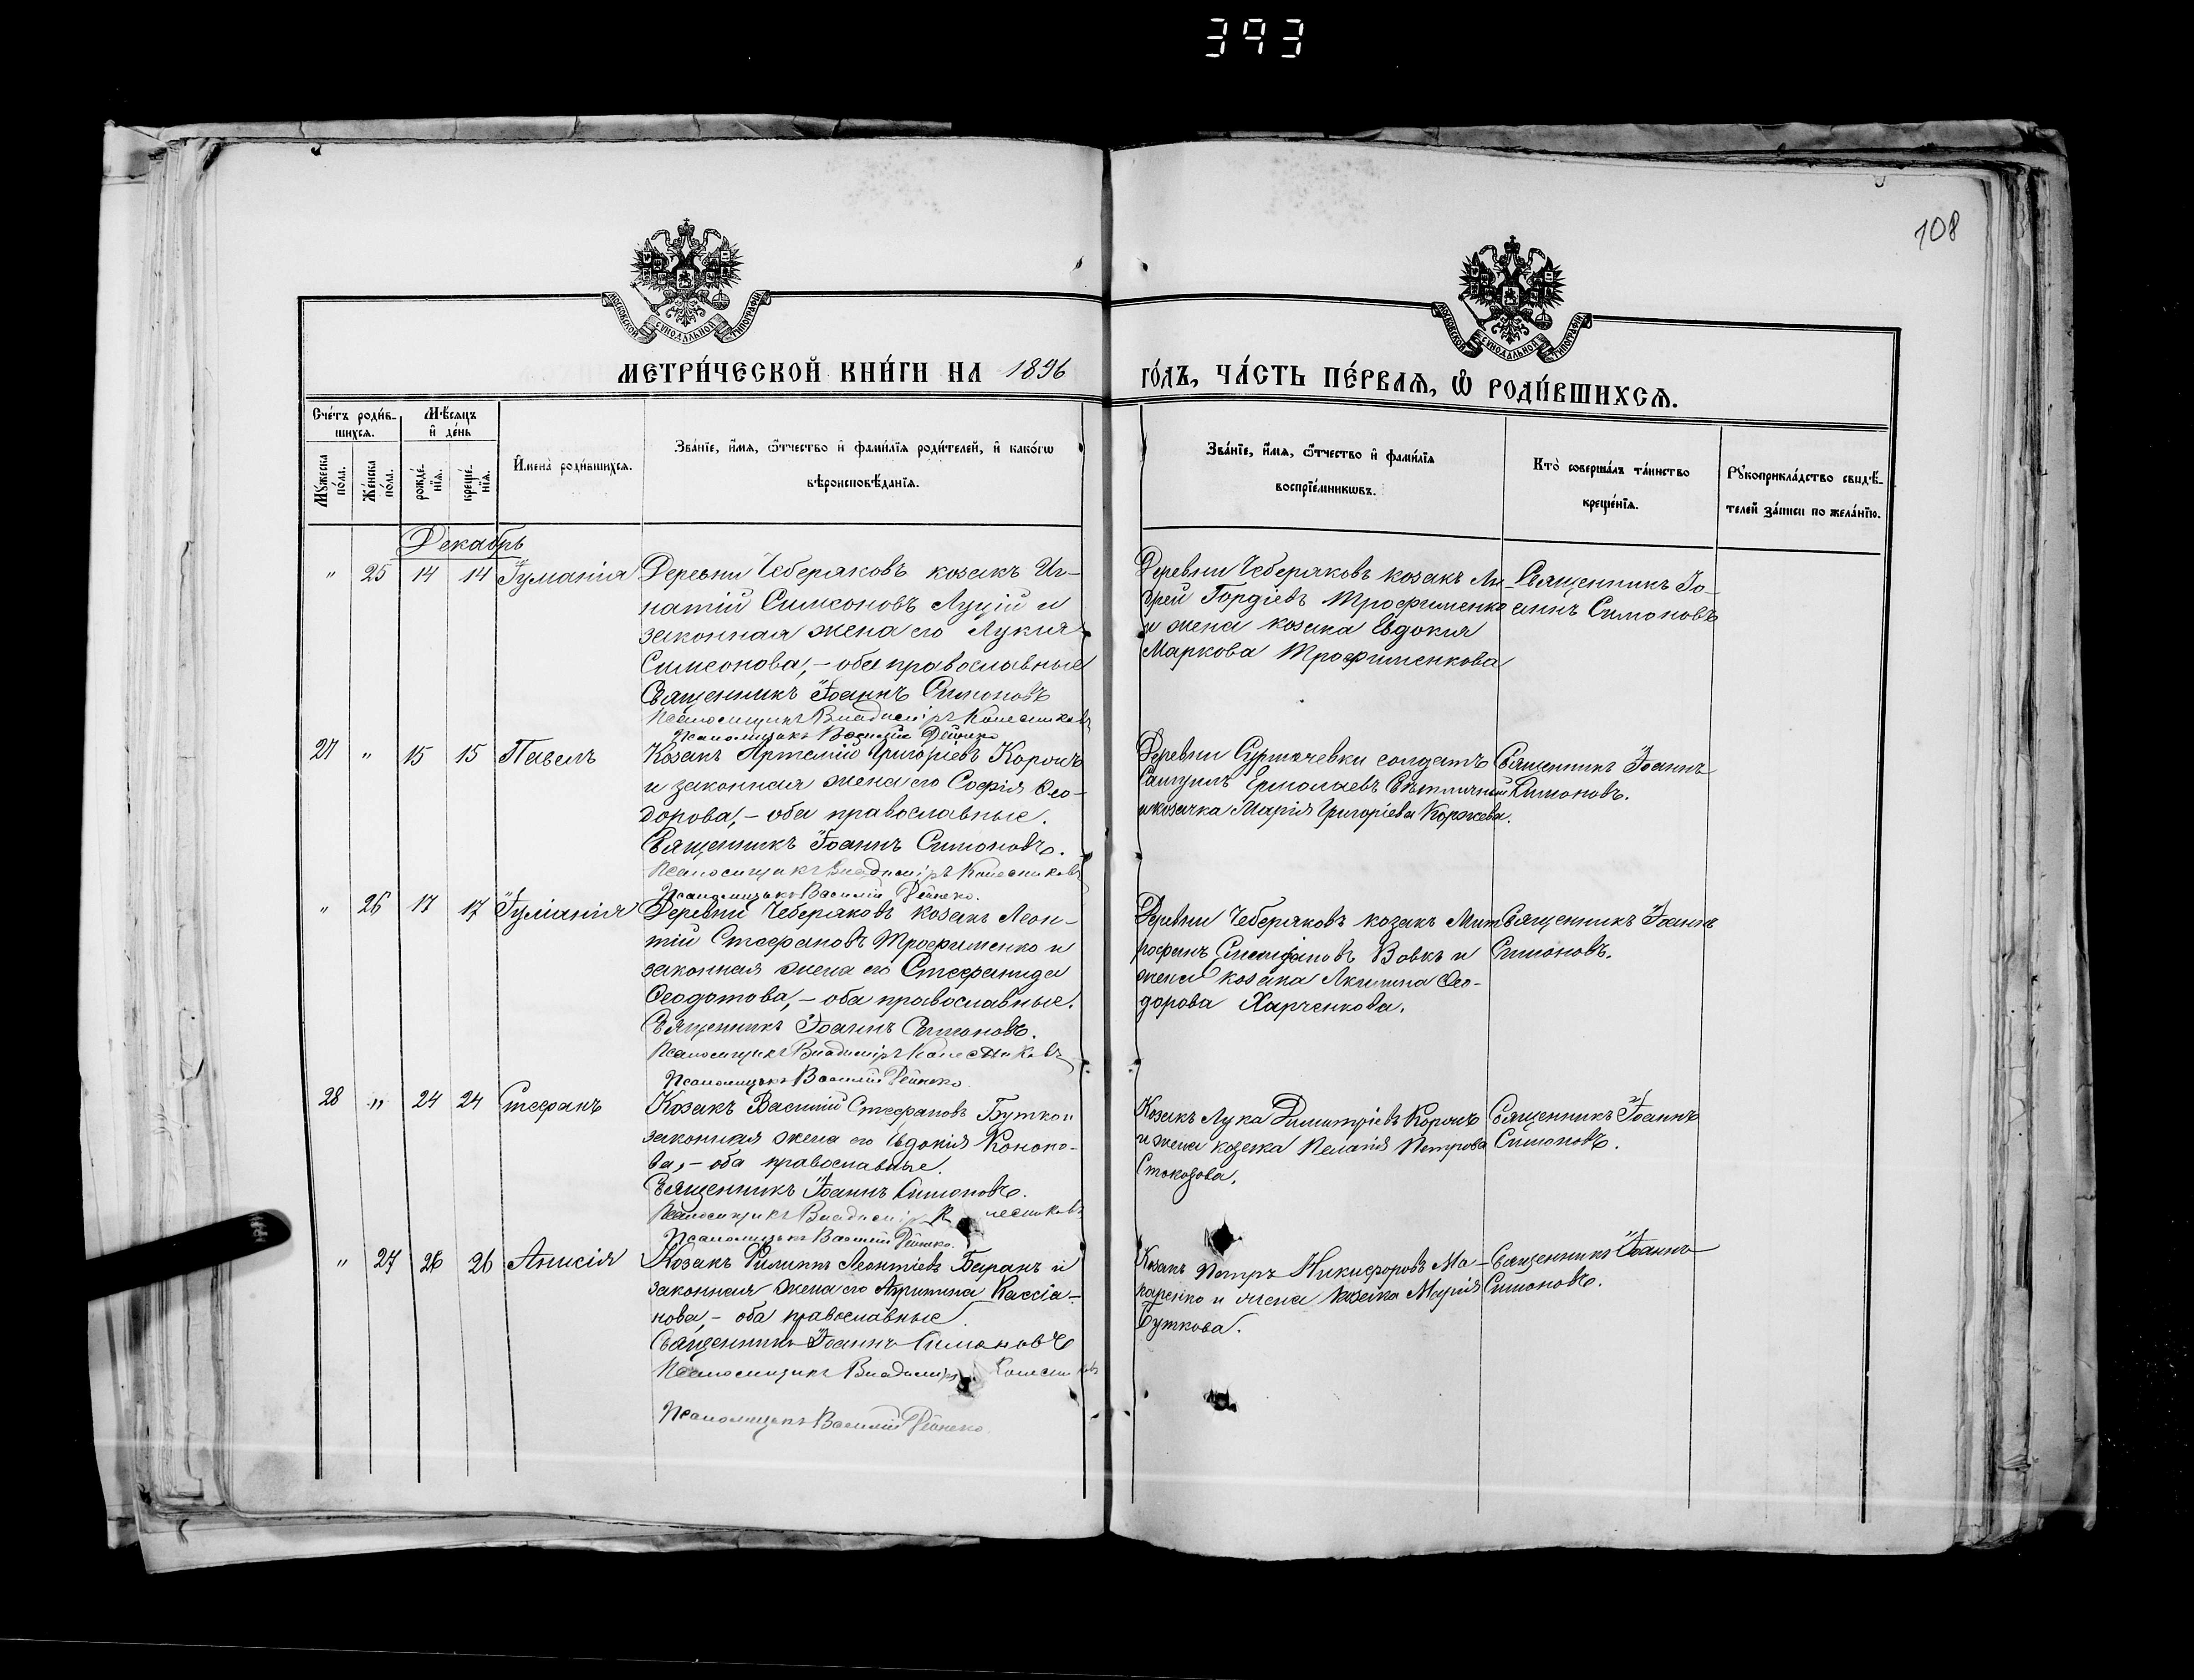 393
108
МОСКОВСКОЙ СУНОДАЛЬНОЙ ТИПОГРАФІИ
МОСКОВСКОЙ СУНОДАЛЬНОЙ ТИПОГРАФІИ
МЕТРИ́ЧЕСКОЙ КНИ́ГИ НА 1896
ГО́ДЪ, ЧА́СТЬ ПЕ́РВАѦ, Ѽ РОДИ́ВШИХСѦ.
Сче́тъ роди́в-
шихсѧ.
Мѣ́сѧцъ
и҆ де́нь
Мꙋ́жеска
по́ла.
Же́нска
по́ла.
рожде́-
нїѧ.
креще́-
нїѧ.
И҆мена̀ роди́вшихсѧ.
Зва́нїе, и҆́мѧ, ѻ҆́тчество и҆ фами́лїѧ роди́телей, и҆ како́гѡ
вѣроисповѣ́данїѧ.
Зва́нїе, и҆́мѧ, ѻ҆́тчество и҆ фами́лїѧ
воспрїе́мникѡвъ.
Кто̀ соверша́лъ та́инство
креще́нїѧ.
Рꙋкоприкла́дство свидѣ́-
телей за́писи по жела́нїю.
Декабрь
" 25 14 14 Іуліанія Деревни Чеберяковъ козакъ Иг-
натій Симеоновъ Луцій и
законная жена его Лукія
Симеонова, – оба православные
Священникъ Іоаннъ Симоновъ
Псаломщикъ Владиміръ Колесниковъ
Псаломщикъ Василій Дейнеко
Деревни Чеберяковъ козакъ Ан-
дрей Гордіевъ Трофименко
и жена козака Евдокія
Маркова Трофименкова
Священникъ Іо-
аннъ Симоновъ
27 " 15 15 Павелъ Козакъ Артемій Григоріевъ Коржъ
и законная жена его Софія Ѳео-
дорова, – оба православные.
Священникъ Іоаннъ Симоновъ.
Псаломщикъ Владиміръ Колесниковъ
Псаломщикъ Василій Дейнеко.
Деревни солдатъ
Самуилъ Ермолаевъ
и козачка Марія Григоріева Коржева.
Священникъ Іоаннъ
Симоновъ.
" 26 17 17 Іуліанія Деревни Чеберяковъ козакъ Леон-
тій Стефановъ Трофименко и
законная жена его Стефанида
Ѳеодотова, – оба православные.
Священникъ Іоаннъ Симоновъ.
Псаломщикъ Владиміръ Колесниковъ
Псаломщикъ Василій Дейнеко
Деревни Чеберяковъ козакъ Мит-
рофанъ Вовкъ и
жена козака Акилина Ѳео-
дорова Харченкова.
Священникъ Іоаннъ
Симоновъ.
28 " 24 24 Стефанъ Козакъ Василій Стефановъ Бутко и
законная жена его Евдокія Кононо-
ва, – оба православные.
Священникъ Іоаннъ Симоновъ.
Псаломщикъ Владиміръ Колесниковъ
Псаломщикъ Василій Дейнеко.
Козакъ Лука Димитріевъ Коржъ
и жена козака Пелагія Петрова
Стокозова.
Священникъ Іоаннъ
Симоновъ.
" 27 26 26 Анисія Козакъ Филиппъ Леонтіевъ Баранъ и
законная жена его Кассіа-
нова, – оба православные.
Священникъ Іоаннъ Симоновъ
Псаломщикъ Владиміръ Колесниковъ
Псаломщикъ Василій Дейнеко.
Козакъ Петръ Никифоровъ Ма-
каренко и жена козака Марія
Буткова.
Священникъ Іоаннъ
Симоновъ.